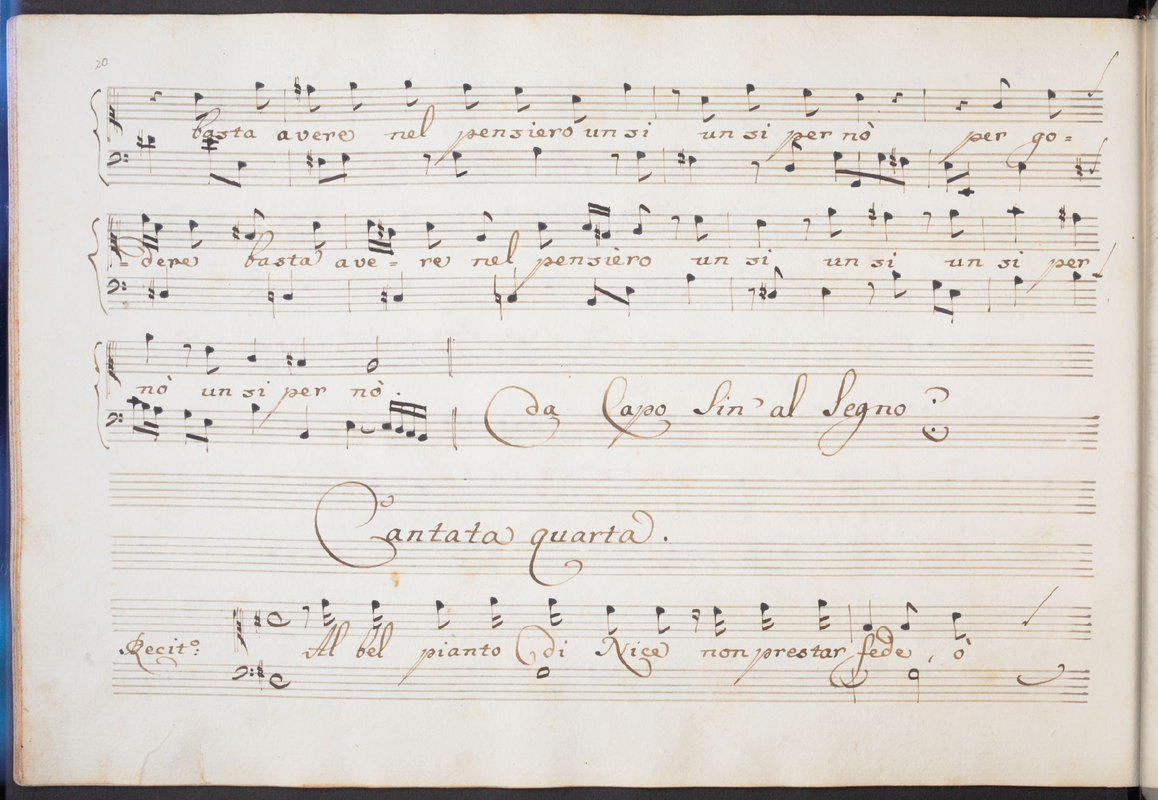 20
basta avere nel pensiero un si un si per nò per go=
=dere basta ave=re nel pensièro un si un si un si per
nò un si per nò.
da Capo sin' al segno
Cantata quarta.
Recit.º: Al bel pianto di Nice non prestar fede, ò